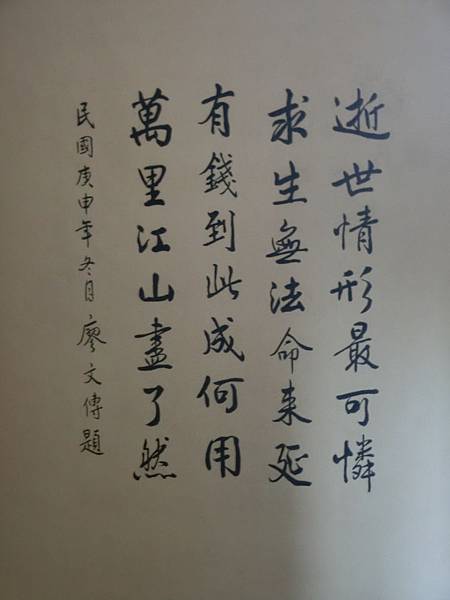 逝世情形最可憐
求生無法命来延
有錢到此成何用
萬里江山盡了然
民國庚申年冬月廖文傳題